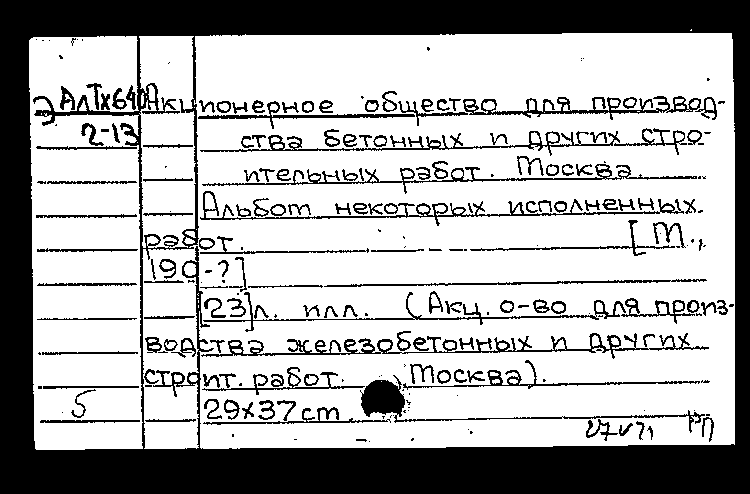 Э АлТх640 Акционерное общество для производ-
2-13 ства бетонных и других стро-
ительных работ. Москва.
Альбом некоторых исполненных
работ. [М.,
190-?]
[23]л. илл. (Акц. о-во для произ-
водства железобетонных и других
строит. работ. Москва).
5 29х37cm